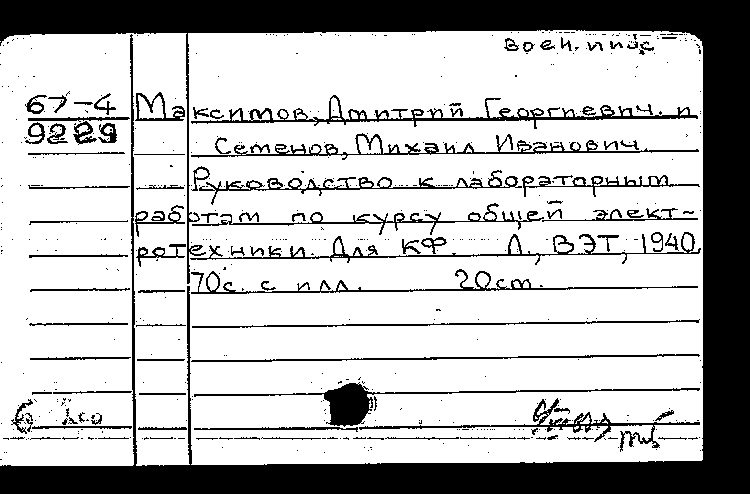 воен.
67-4
9229
Максимов, Дмитрий Георгиевич. и
Семенов, Михаил Иванович.
Руководство к лабораторным
работам по курсу общей элект-
ротехники. Для КФ. Л., ВЭТ, 1940.
70с. с илл. 20см.